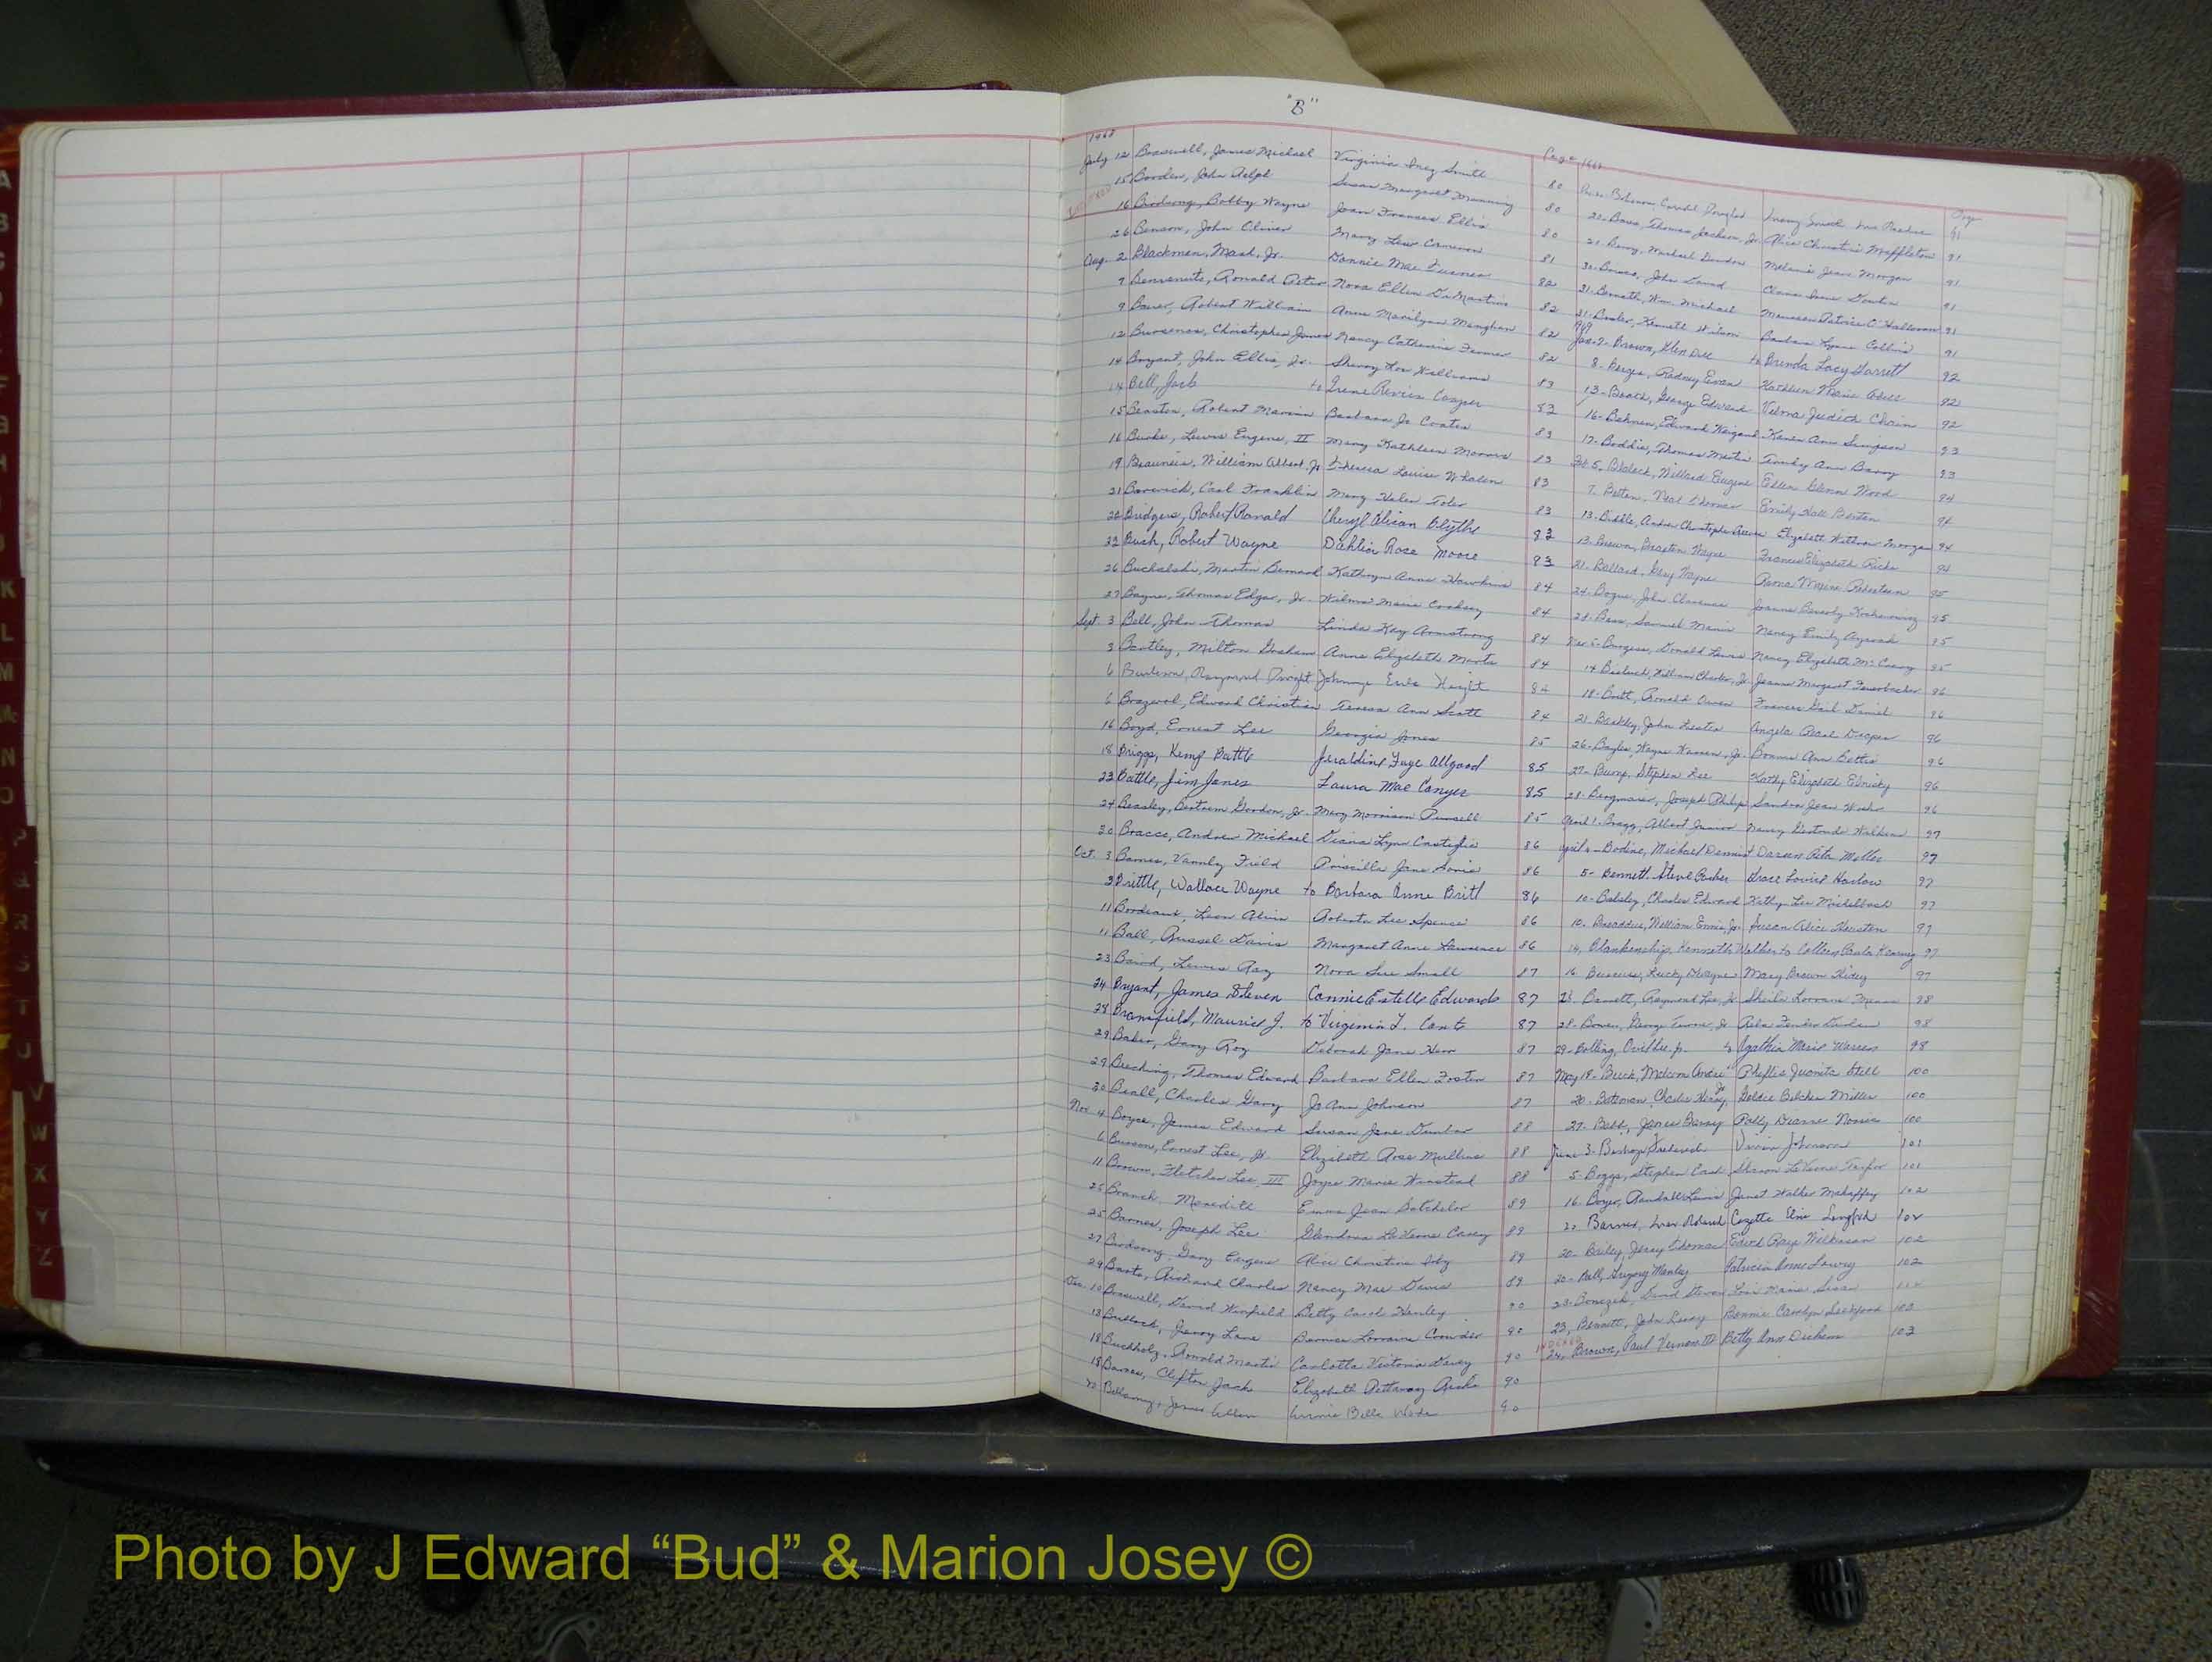 "B"
1968
July 12 Braswell, James Michael Virginia Inez Smith 80
15 Borden, John Relph Susan Margaret Manning 80
16 Birdsong, Bobby Wayne Joan Frances Ellis 80
26 Benson, John Oliver Mary Lew Cameron 81
Aug. 2 Blackmon, Mack, Jr. Donnie Mae Turner 82
7 Benvenuto, Ronald Peter Nora Ellen DiMartino 82
9 Bauer, Robert William Anne Marilynn Monghan 82
12 Christopher James Nancy Catherine Farmer 82
14 Bryant, John Ellis, Jr. Sherry Lou Williams 83
14 Bell, Jack to Irene Cooper 83
15 Benston, Robert Marvin Barbara Jo Coates 83
16 Burke, Lewis Eugene, II Mary Kathleen Morris 83
19 William Albert, Jr. Theresa Louise Whalen 83
21 Barwick, Carl Franklin Mary Helen Toler 83
22 Bridgers, Robert Ronald Cheryl Alison Blythe 83
23 Bush, Robert Wayne Dahlia Rose Moore 83
26 Martin Bernard Kathryn Anne Hawkins 84
27 Bayne, Thomas Edgar, Jr. Wilma Marie Cooksey 84
Sept. 3 Bell, John Thomas Linda Kay Armstrong 84
3 Bartley, Milton Graham Anne Elizabeth Martz 84
6 Burleson, Raymond Dwight Johnnye Eule Haight 84
6 Edward Christian Teresa Ann Scott 84
16 Boyd, Ernest Lee Georgia Jones 85
18 Briggs, Kemp Battle Jeraldine Faye Allgood 85
23 Battle, Jim Jones Laura Mae Conyer 85
24 Beasley, Bertram Gordon, Jr. Mary Morrison Pursell 85
30 Bracco, Andrew Michael Diana Lynn Castiglia 86
Oct. 3 Barnes, Vannly Field Priscilla Jane 86
3 Brittle, Wallace Wayne to Barbara Anne Britt 86
11 Bordeaux, Leon Alvin Roberta Lee Spence 86
11 Ball, Russel Davis Margaret Anne Lawrence 86
23 Baird, Lewis Ray Nora Sue Small 87
24 Bryant, James Steven Connie Estelle Edwards 87
28 Bransfield, Maurice J. to Virginia L. 87
29 Baker, Gary Roy Deborah Jane 87
29 Beeching, Thomas Edward Barbara Ellen Foster 87
30 Beall, Charles Gary Jo Ann Johnson 87
Nov. 4 Boyce, James Edward Susan Jane Dunbar 88
6 Ernest Lee, Jr. Elizabeth Rose Mullins 88
11 Brown, Fletcher Lee, III Joyce Marie Winstead 88
25 Branch, Meredith Emma Jean Batchelor 89
25 Barnes, Joseph Lee Glendora LaVerne Casey 89
27 Birdsong, Gary Eugene Alice Christine Isby 89
29 Barto, Richard Charles Nancy Mae Davis 89
Dec. 10 Braswell, David Winfield Betty Carol Hanley 90
13 Bullock, Jerry Lane Bernice Lorraine Crowder 90
18 Buchholz, Ronald Martin Carlotta Victoria Davey 90
18 Barnes, Clifton Jack Elizabeth Pettaway 90
20 Bellamy, James Allen Annie Belle Wade 90
Page 1968 Page
91
20- Thomas Jackson, Jr. Alice Christine Maffleton 91
21- Berry, Michael Melanie Jean Morgan 91
30- John David 91
31- Wm. Michael Maureen Patricia O'Halloran 91
31- Kenneth Wilson Barbara Lynn Collins 91
1969
Jan. 2- Brown, Glen Dell to Brenda Lacy Garrett 92
8- Rodney Evan Kathleen Marie Odell 92
13- Booth, George Edward Velma Judith Chrin 92
16- Edward Weigand Karen Ann Simpson 93
17- Boddie, Thomas Trudy Ann Barry 93
Feb 5- Blalock, Willard Eugene Ellen Glenn Wood 94
7- Neal Thomas Emily 94
13- Biddle, Andrew Christopher Elizabeth Withrow Morgan 94
13- Braxton Wayne Frances Elizabeth Ricks 94
21- Ballard, Gary Wayne Maxine Robertson 95
24- Bogue, John Clarence Joanne Beverly 95
28- Bass, Samuel Nancy Emily 95
5- Burgess, Donald Lewis Nancy Elizabeth McCrary 95
14 William Charles, Jr. Jeanne Margaret Feuerbacher 96
18- Britt, Ronald Owen Frances Gail Daniel 96
21- John Lester Angela Pearl Draper 96
26- Bayles, Wayne Warren, Jr. Bonnie Ann Bettis 96
27- Bump, Stephen Lee Kathy Elizabeth 96
28- Joseph Philip Sandra Jean 96
April 1- Bragg, Albert Junior Nancy Gertrude Walker 97
April 4- Bodine, Michael Dennis Doreen Rita 97
5- Bennett, Steve Parker Grace Louise Harlow 97
10- Balsley, Charles Edward Kathy Lee Michelbach 97
10- Broaddus, William Ennis, Jr. Susan Alice Thurston 97
14, Blankenship, Kenneth Walker to Colleen Paula Kearney 97
16- Lucky Dwayne Mary Brown 97
25- Barnett, Raymond Lee, Jr. Sheila Lorraine 98
28- Bowen, George Jr. 98
29- Bolling, Jr. to Agathia Marie Warren 98
May 18- Buck, Melvin Andre Phyllis Juanita Still 100
20- Bateman, Charlie Henry, Jr. Goldie Belcher Miller 100
27- Babb, James Barry Patty Diane Norris 100
June 3- Bishop, Frederick Vivian Johnson 101
5- Boggs, Stephen Earl Sharon LaVerne Taylor 101
16 Boyer, Randall Lewis Janet Walker Mahaffey 102
Barnes, Roland Cozette Elvie 102
20- Briley, Jerry Thomas Edith Raye Wilkinson 102
20- Ball, Gregory Manley Patricia Anne Lowry 102
23- David Steven Lois Marie
23, Bennett, John Leroy Bonnie Carolyn 103
INDEXED
24, Brown, Paul Vernon III Betty Ann Dickens 103
A
B
K
L
M
Mc
N
O
P
Q
R
S
T
U
V
W
X
Y
Z
Photo by J Edward “Bud” & Marion Josey ©